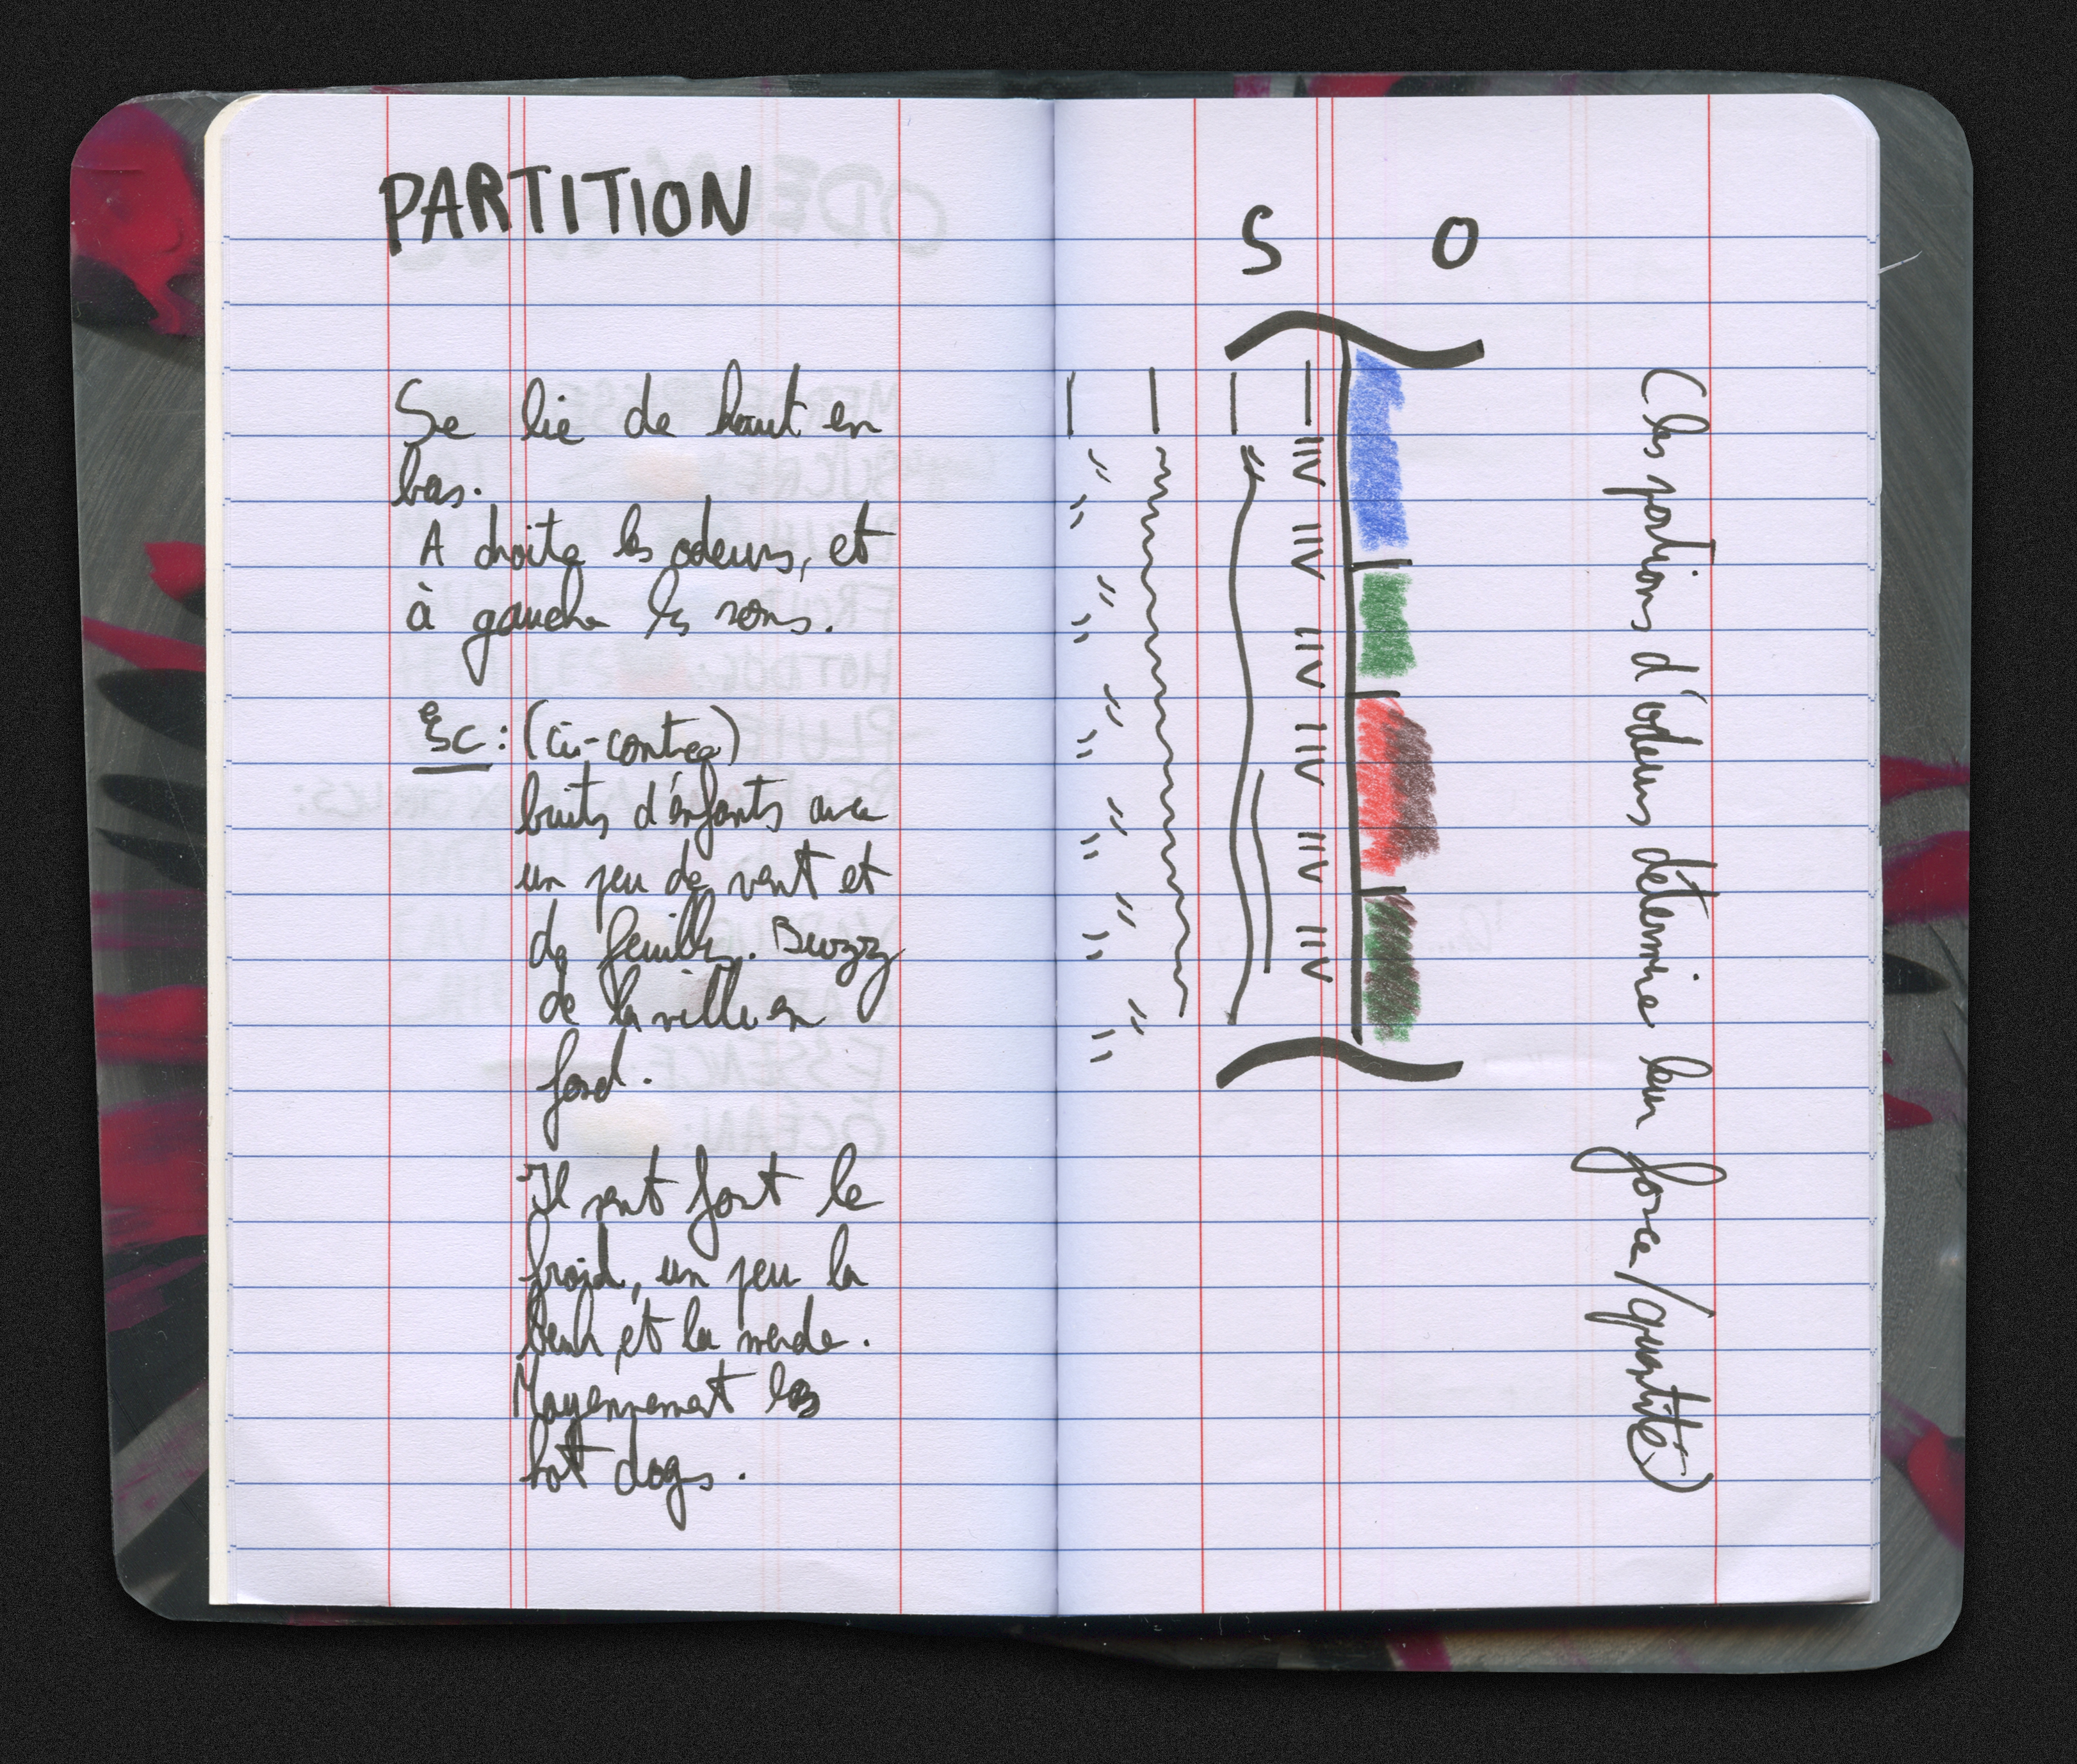 PARTITION
Se lie de haut en
bas.
A droite les odeurs, et
à gauche les sons.
(ci-contre)
bruits d'enfants avec
un peu de vent et
de feuilles. Buzz
de la ville en
fond.
Il sent fort le
froid, un peu la
beuh, et la merde.
Moyennement les
hot dogs.
S O
(les portions d'odeurs détermine leur force/quantité)